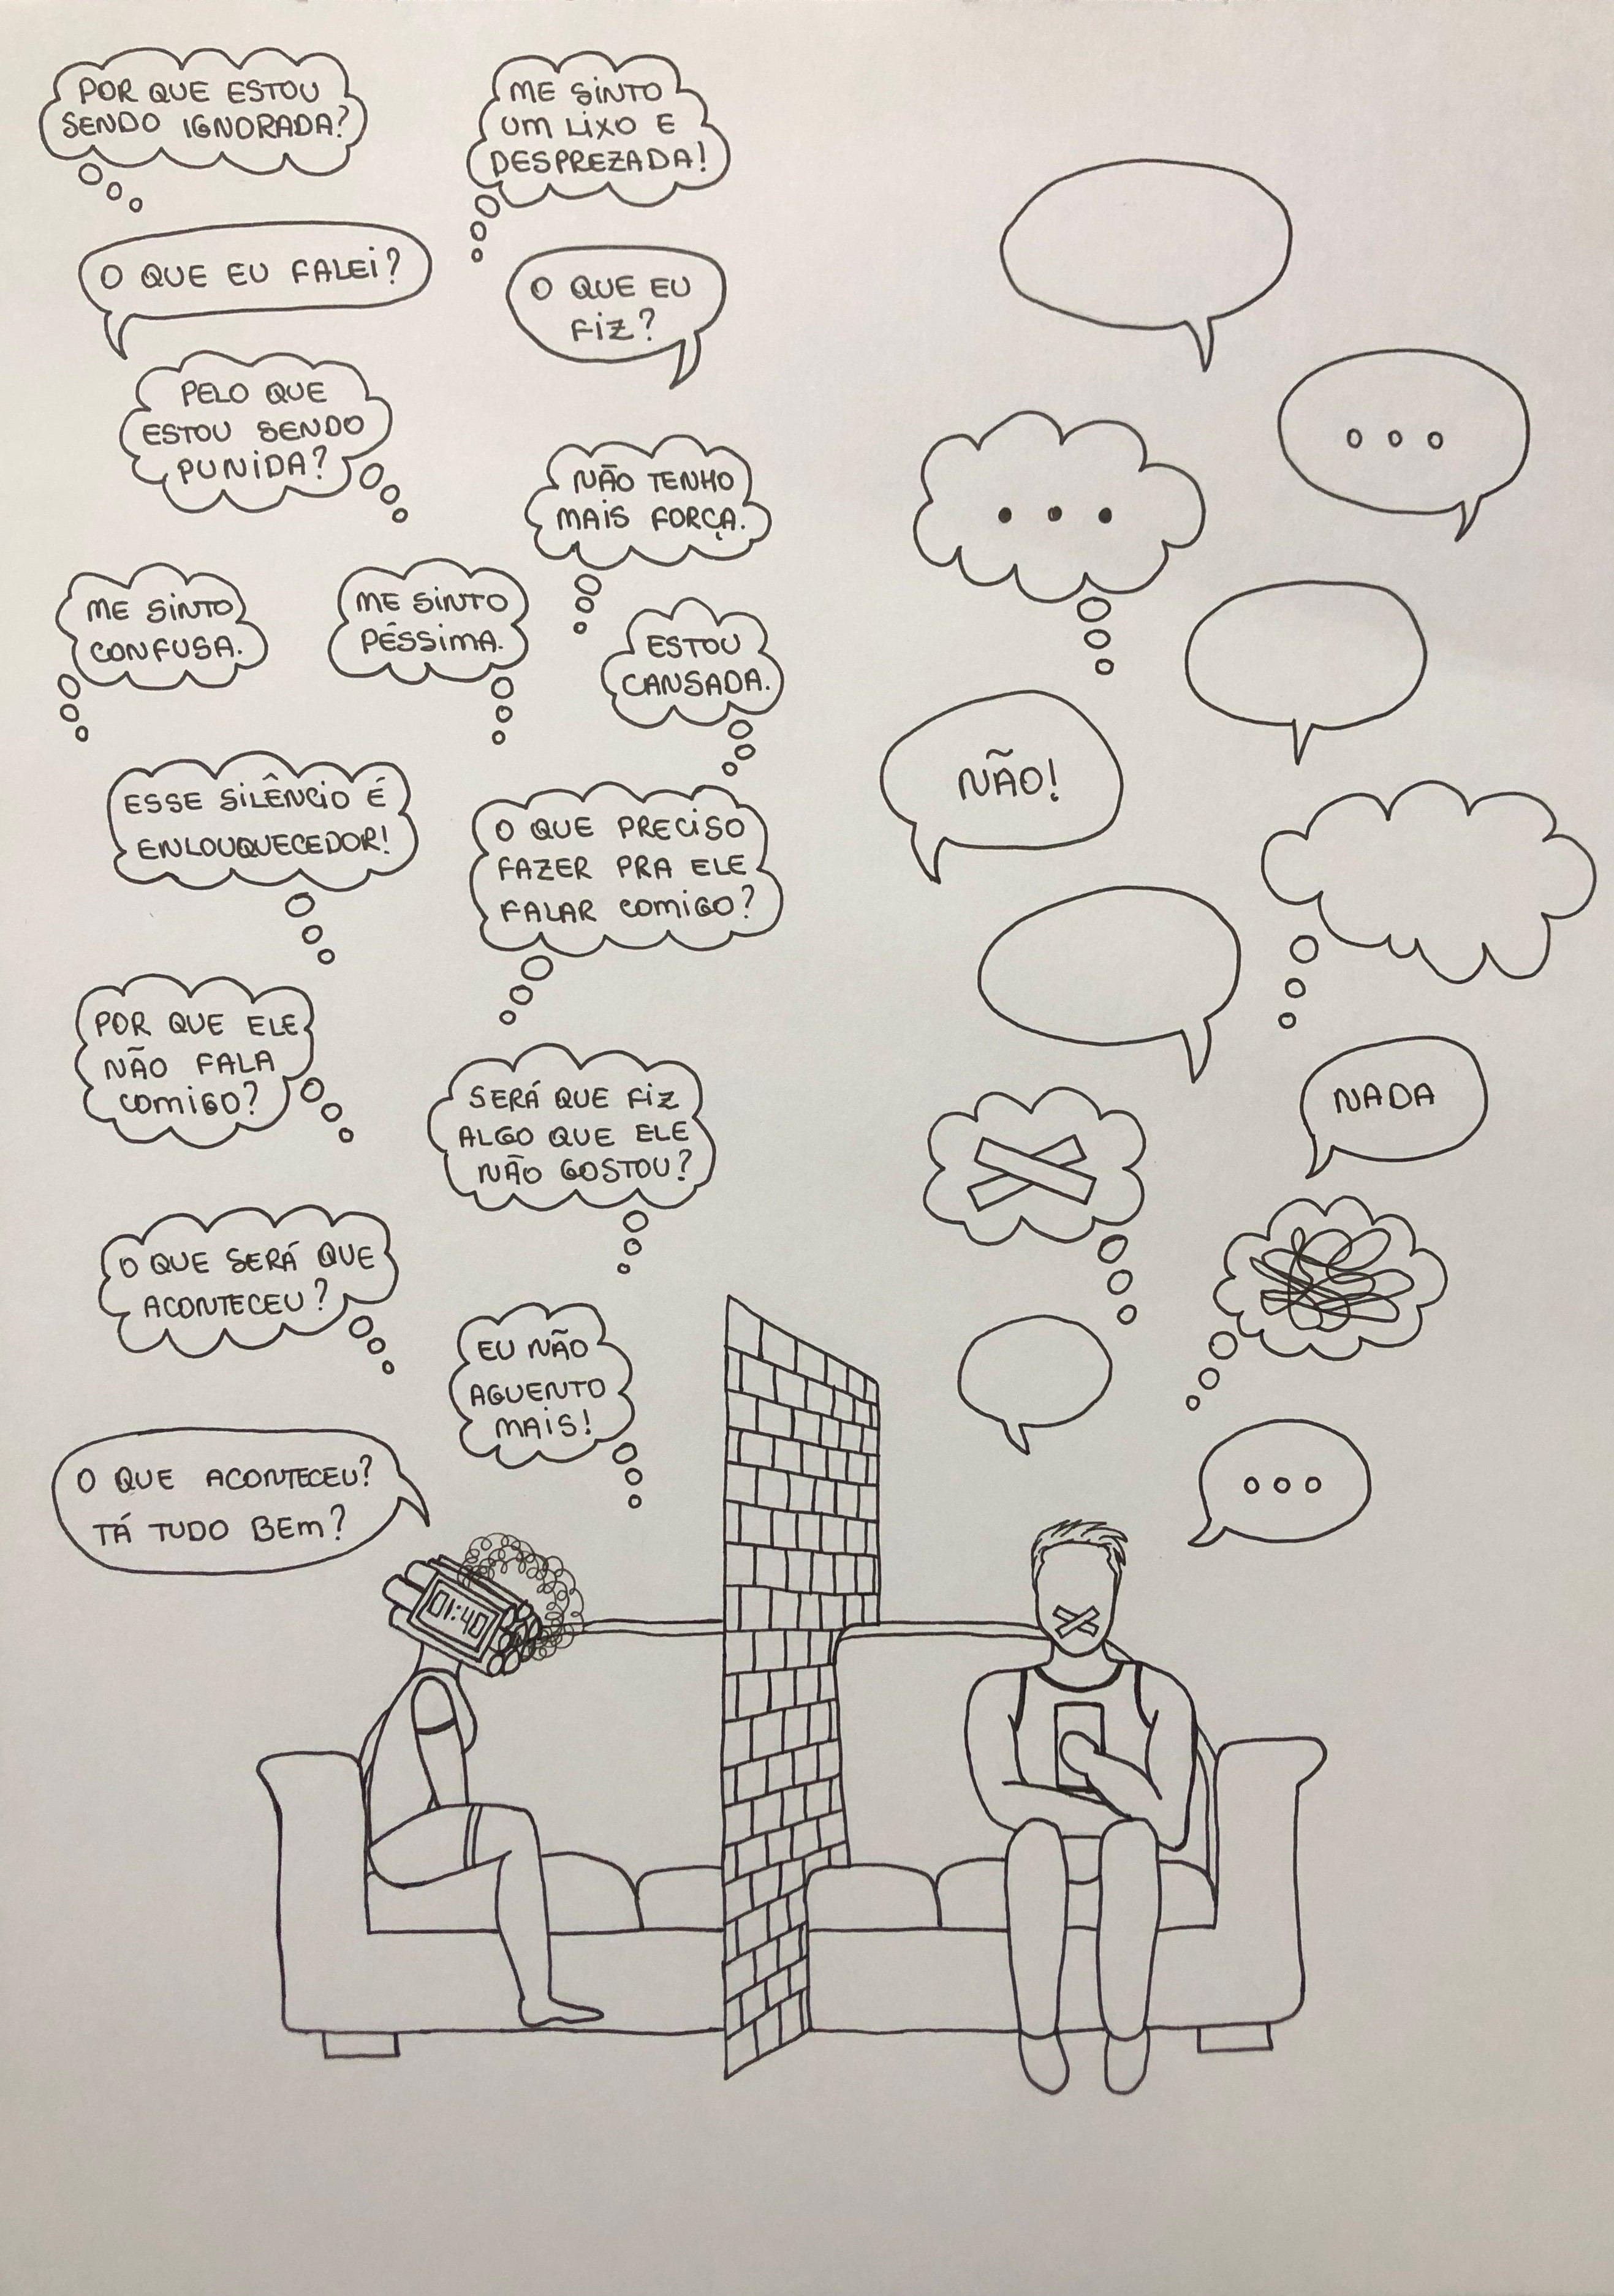 POR QUE ESTOU
SENDO IGNORADA?
ME SINTO
UM LIXO E
DESPREZADA!
O QUE EU FALEI?
O QUE EU
FIZ?
PELO QUE
ESTOU SENDO
PUNIDA?
NÃO TENHO
MAIS FORÇA.
ME SINTO
CONFUSA.
ME SINTO
PÉSSIMA.
ESTOU
CANSADA.
ESSE SILÊNCIO É
ENLOUQUECEDOR!
O QUE PRECISO
FAZER PRA ELE
FALAR COMIGO?
POR QUE ELE
NÃO FALA
COMIGO?
SERÁ QUE FIZ
ALGO QUE ELE
NÃO GOSTOU?
O QUE SERÁ QUE
ACONTECEU?
EU NÃO
AGUENTO
MAIS!
O QUE ACONTECEU?
TÁ TUDO BEM?
01:40
...
...
NÃO!
NADA
...